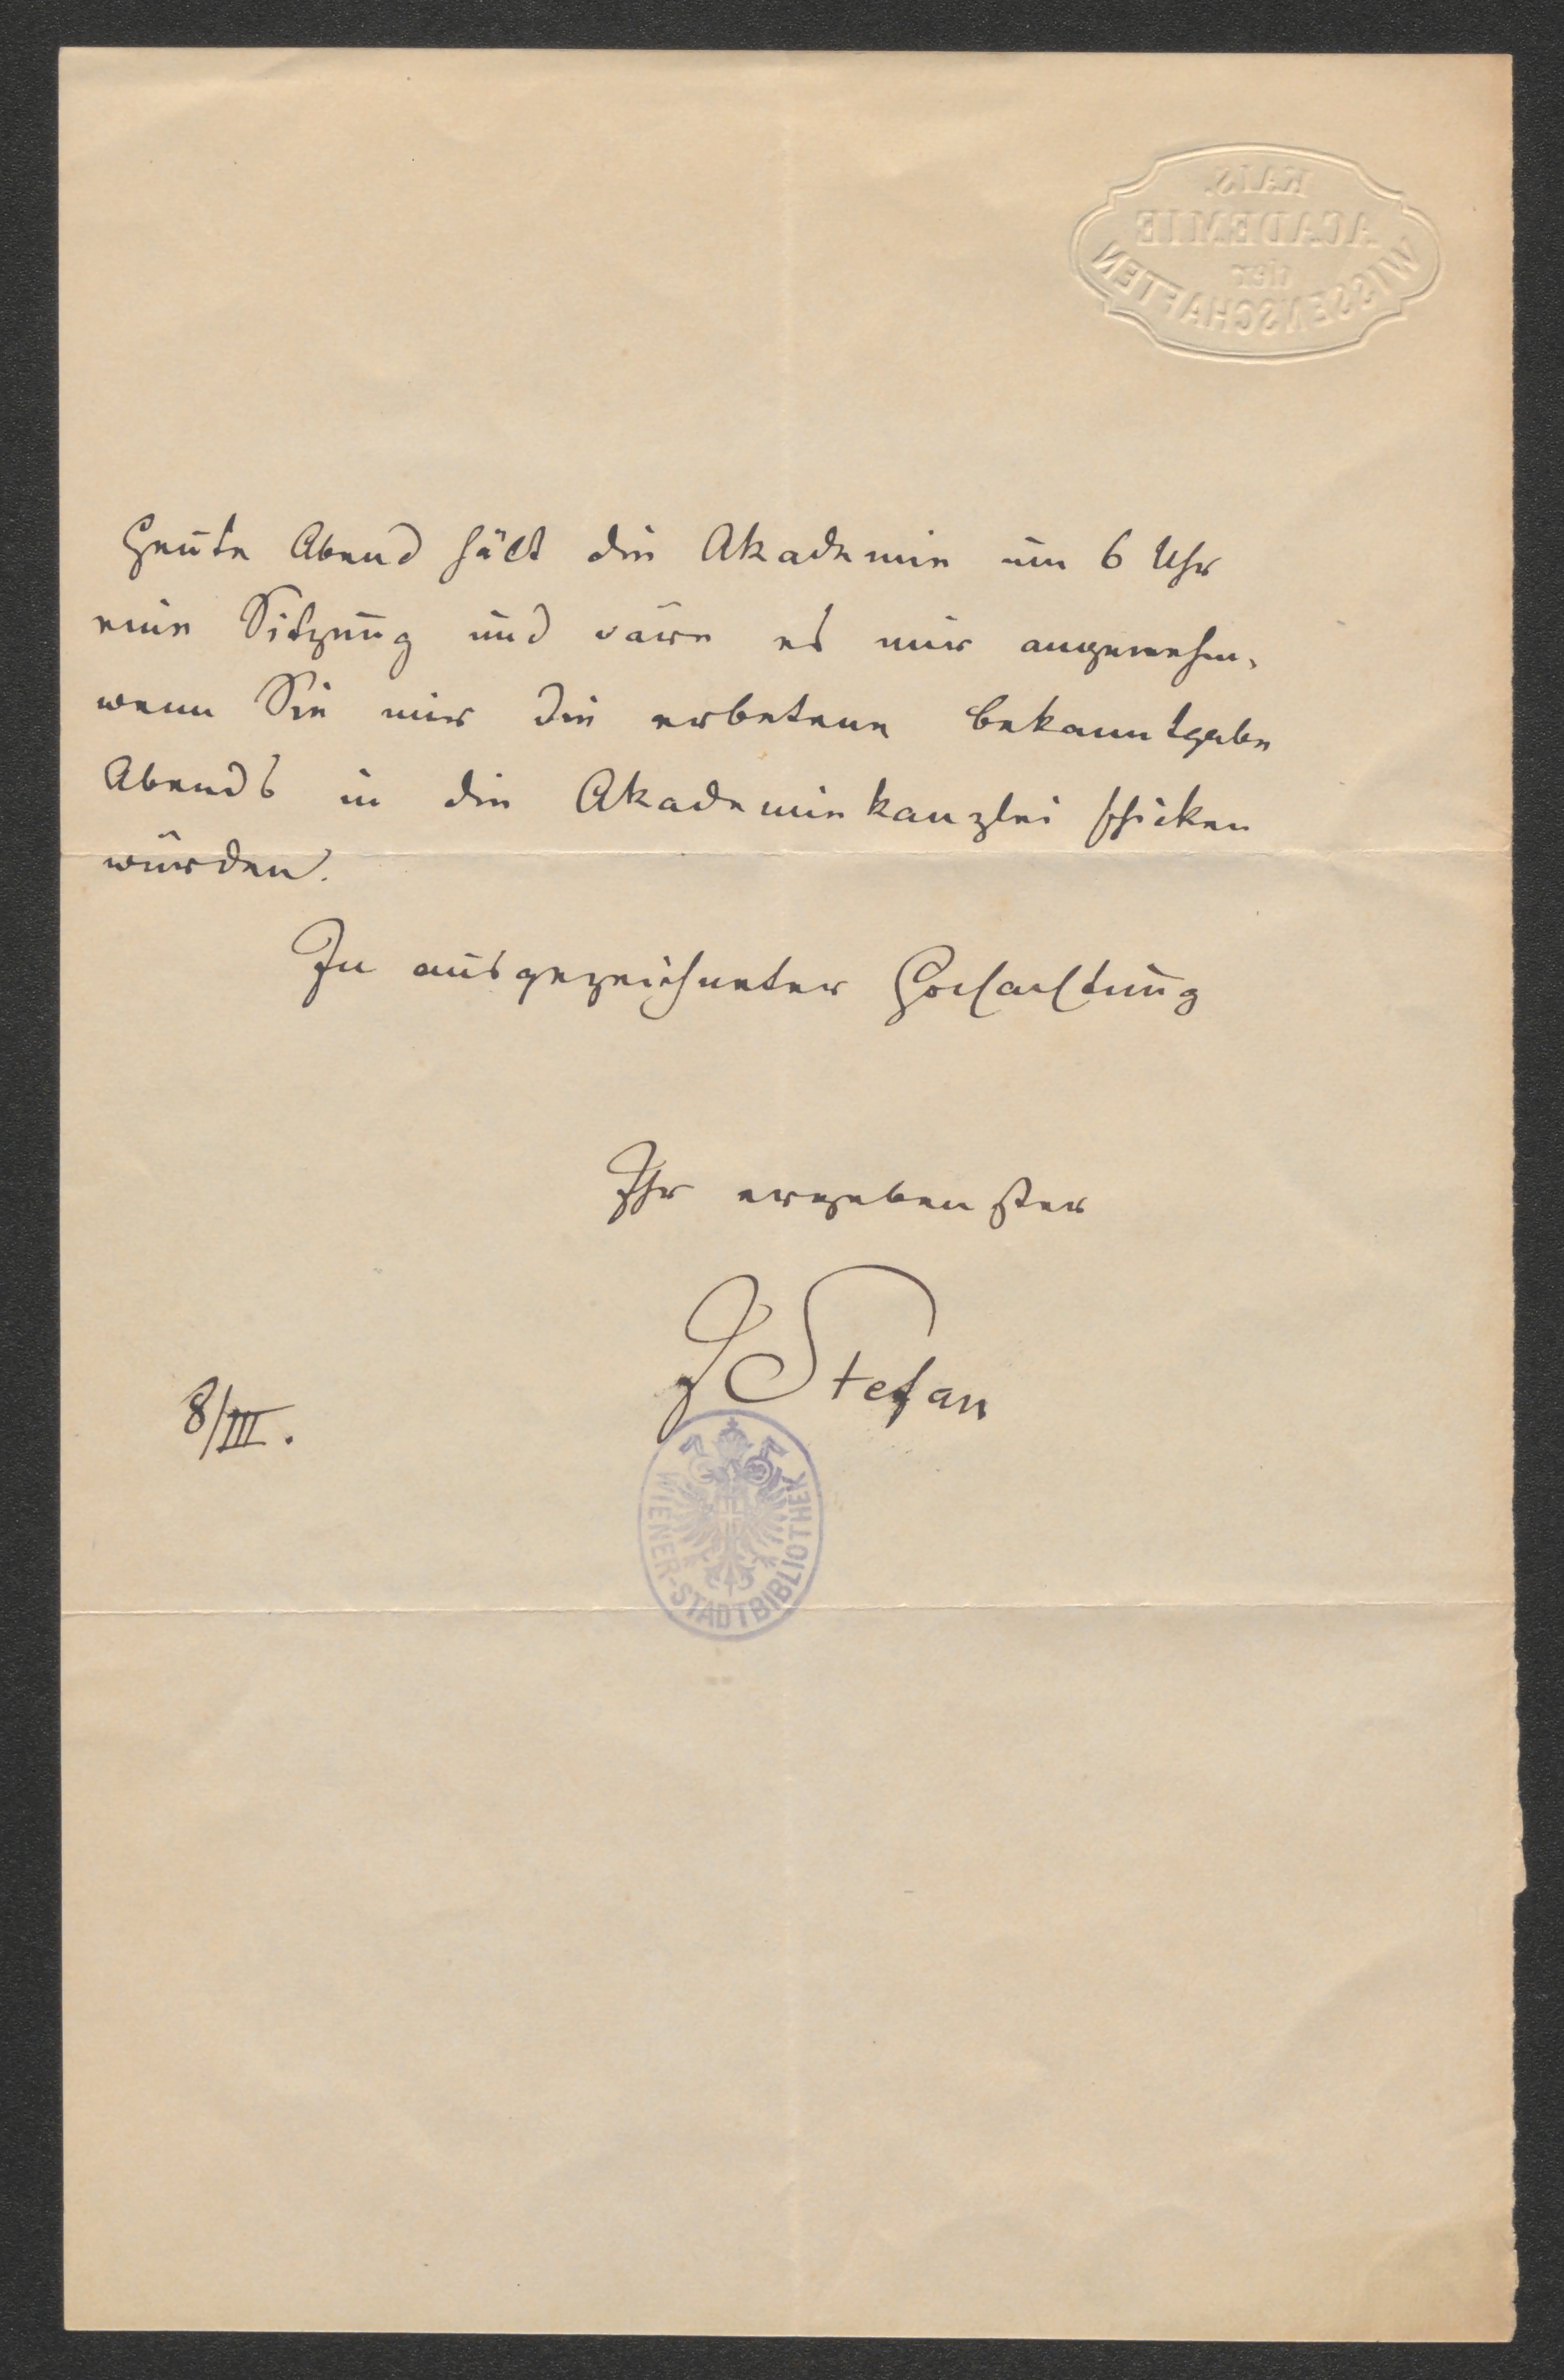 KAIS.
ACADEMIE
der
WISSENSCHAFTEN
Heute Abend hält die Akademie um 6 Uhr
eine Sitzung und wäre es mir angenehm,
wenn Sie mir die erbetene Bekanntgabe
Abends in die Akademiekanzlei schicken
würden.
In ausgezeichneter Hochachtung
Ihr ergebenster
J Stefan
8/III.
WIENER-STADTBIBLIOTHEK